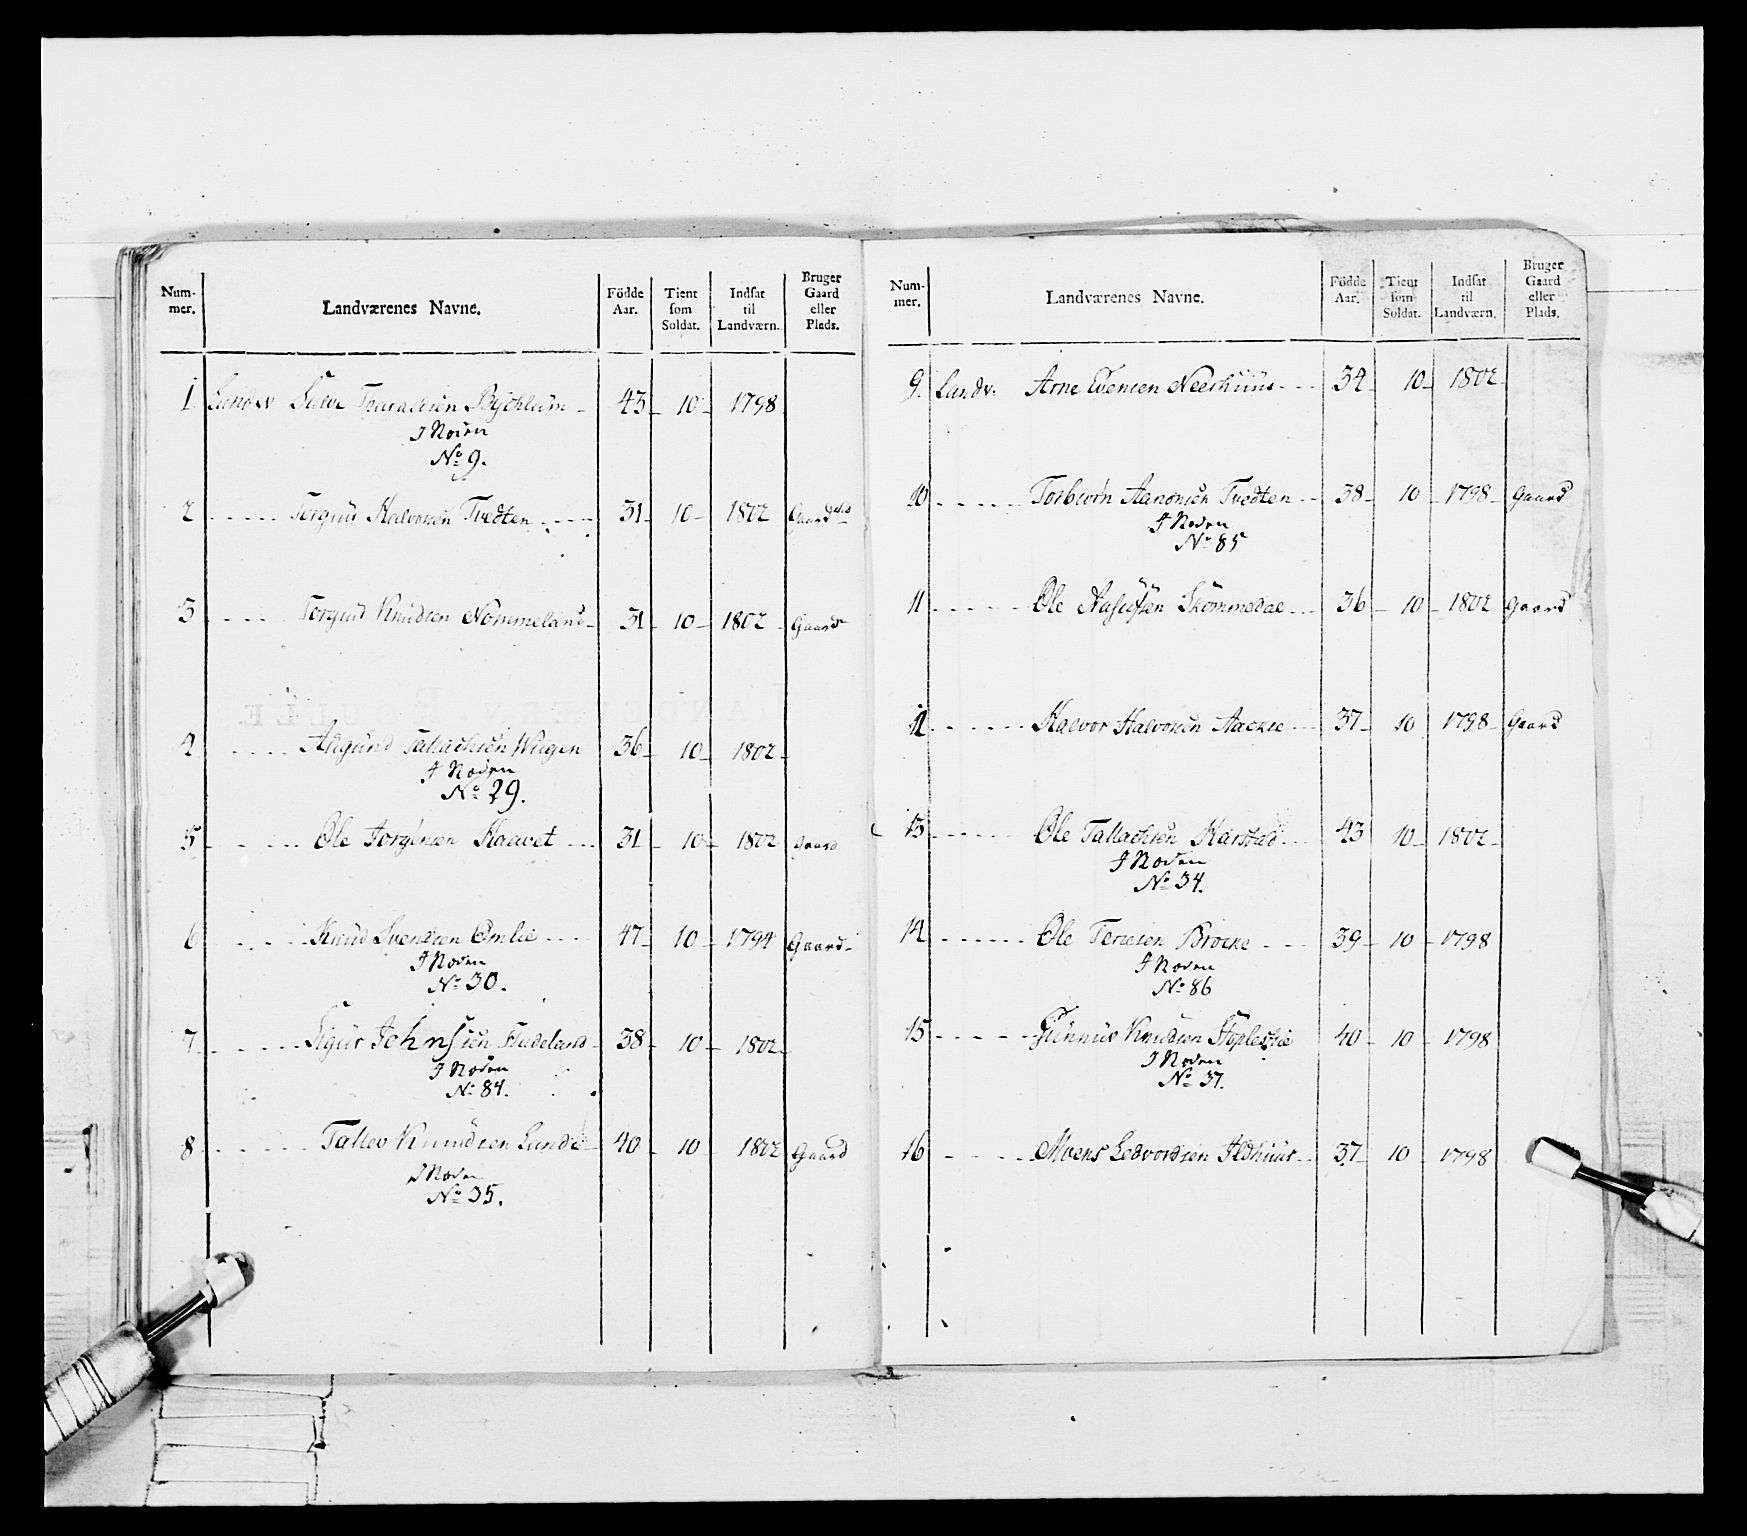 Num-
mer.
Landværenes Navne.
Födde
Aar.
Tient
som
Soldat.
Indsat
til
Landværn.
Bruger
Gaard
eller
Plads.
1 Landev 43 10 1798
I Noden
No 9.
2 Torgius Halvorsen Tvedten 31 10 1802 Gaard
3 Torgius Knudsen Nommeland 31 10 1802 Gaard
4 Augund Tallachsen 36 10 1802
I Noden
No 29.
5 Ole Jorgensen Haavet 31 10 1802 Gaard
6 Knud Svendsen Omlie 47 10 1794 Gaard
I Noden
No 30.
7 Sigur Johnsen 38 10 1802
I Noden
No 84.
8 Tallev Knudsen Lande 40 10 1802 Gaard
I Noden
No 35.
Num-
mer.
Landværenes Navne.
Födde
Aar.
Tient
som
Soldat.
Indsat
til
Landværn.
Bruger
Gaard
eller
Plads.
9. Landv: Arne Evensen Neerhuus 34 10 1802
10 Torbiörn Aanonsen Tvedten 38 10 1798 Gaard
I Noden
No 85
11 Ole Skommedal 36 10 1802 Gaard
12 Halvor Halvorsen 37 10 1798 Gaard
13 Ole Tallachsen Harstad 43 10 1802
I Noden
No 34.
14 Ole Terjesen Brocke 39 10 1798
I Noden
No 86
15 Gunnius Knudsen 40 10 1798
I Noden
No 37.
16 37 10 1798